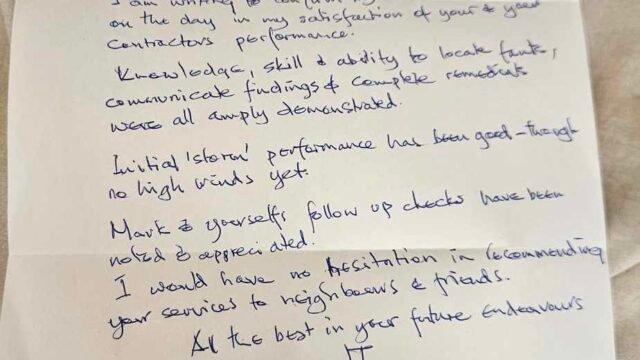 I am writing to confirm
on the day in my satisfaction of your & your
Contractors performance.
Knowledge, skill & ability to locate faults,
communicate findings & complete remedials
were all amply demonstrated.
Initial 'storm' performance has been good - though
no high winds yet.
Mark & yourselfs follow up checks have been
noted & appreciated.
I would have no hesitation in recommending
your services to neighbours & friends.
All the best in your future Endeavours